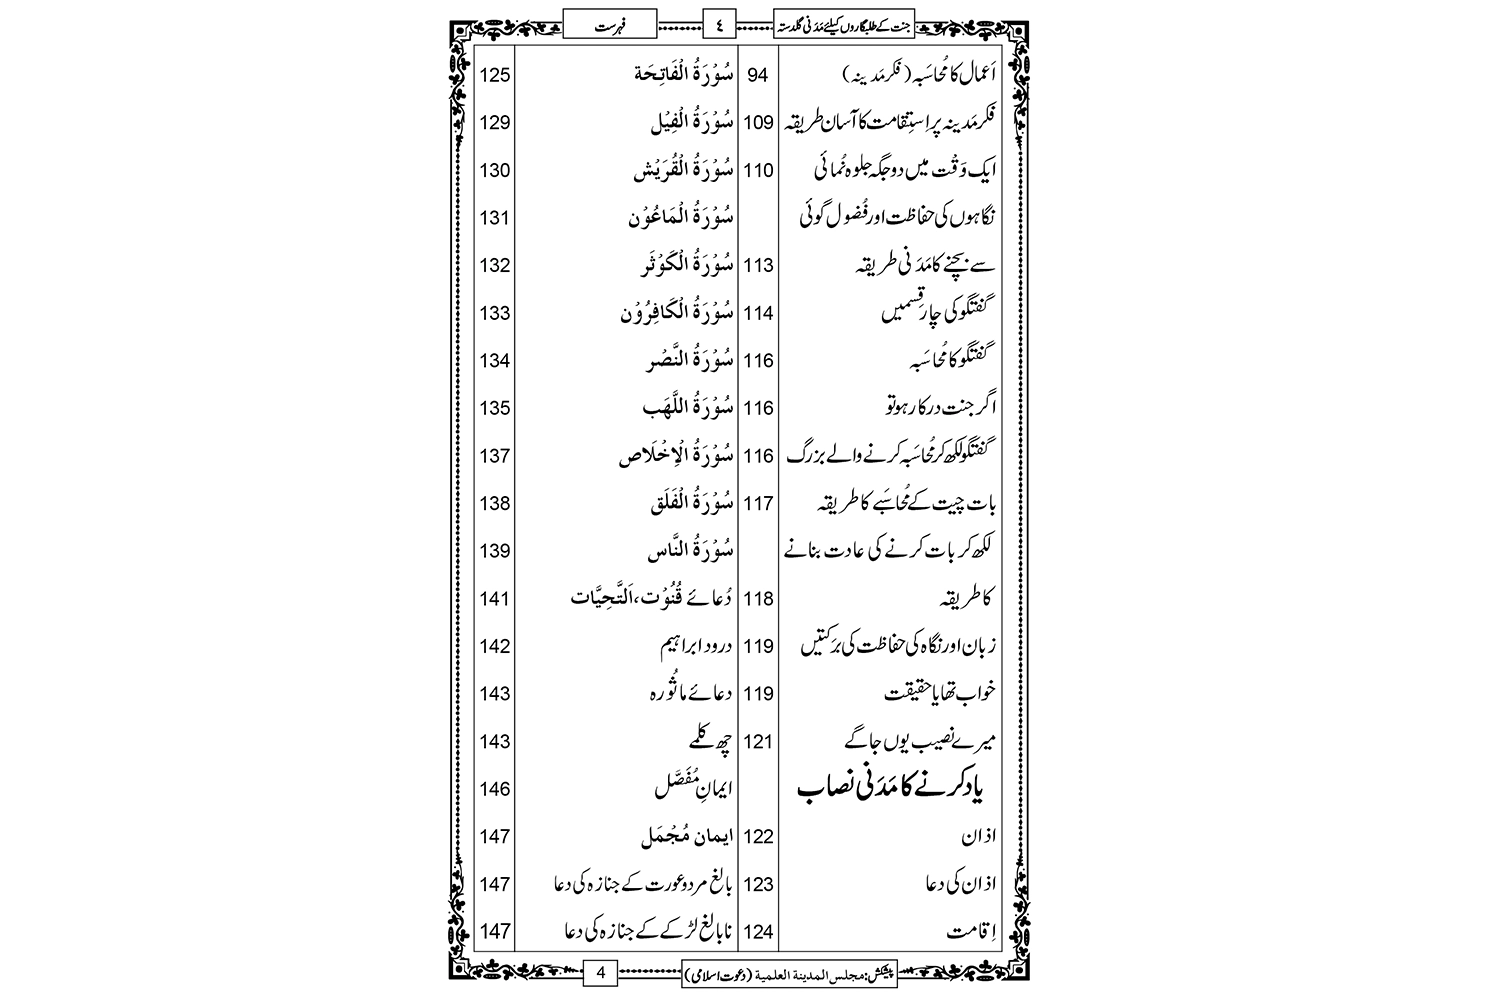 جنت کے طلبگاروں کیلئے مَدَنی گلدستہ
٤
فہرست
اَعمال کا مُحاسَبہ (فکرِ مَدینہ) 94
فکرِ مَدینہ پر اِستِقامت کا آسان طریقہ 109
ایک وَقْت میں دو جگہ جلوہ نُمائی 110
نگاہوں کی حفاظت اور فُضول گوئی
سے بچنے کا مَدَنی طریقہ 113
گفتگو کی چار قِسمیں 114
گفتگو کا مُحاسَبہ 116
اگر جنت درکار ہو تو 116
گفتگو لکھ کر مُحاسَبہ کرنے والے بزرگ 116
بات چیت کے مُحاسَبے کا طریقہ 117
لکھ کر بات کرنے کی عادت بنانے
کا طریقہ 118
زبان اور نگاہ کی حفاظت کی بَرَکتیں 119
خواب تھا یا حقیقت 119
میرے نصیب یوں جاگے 121
یاد کرنے کا مَدَنی نصاب
اذان 122
اذان کی دعا 123
اِقامت 124
سُوْرَۃُ الْفَاتِحَة 125
سُوْرَۃُ الْفِیْل 129
سُوْرَۃُ الْقُرَیْش 130
سُوْرَۃُ الْمَاعُوْن 131
سُوْرَۃُ الْکَوْثَر 132
سُوْرَۃُ الْکَافِرُوْن 133
سُوْرَۃُ النَّصْر 134
سُوْرَۃُ اللَّهَب 135
سُوْرَۃُ الْاِخْلَاص 137
سُوْرَۃُ الْفَلَق 138
سُوْرَۃُ النَّاس 139
دُعائے قُنُوْت، اَلتَّحِیَّات 141
درود ابراہیم 142
دعائے ماثُورہ 143
چھ کلمے 143
ایمانِ مُفَصَّل 146
ایمان مُجْمَل 147
بالغ مرد و عورت کے جنازہ کی دعا 147
نابالغ لڑکے کے جنازہ کی دعا 147
پیشکش: مجلس المدینة العلمیة (دعوت اسلامی)
4